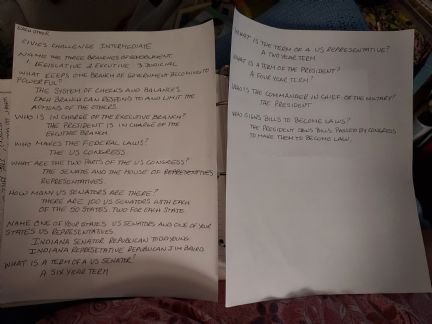 CIVICS CHALLENGE INTERMEDIATE
NAME THE THREE BRANCHES OF GOVERNMENT.
1 LEGISLATIVE 2 EXECUTIVE 3 JUDICIAL
WHAT KEEPS ONE BRANCH OF GOVERNMENT BECOMING TO
POWERFUL?
THE SYSTEM OF CHECKS AND BALANCES
EACH BRANCH CAN RESPOND TO AND LIMIT THE
ACTIONS OF THE OTHERS.
WHO IS IN CHARGE OF THE EXECUTIVE BRANCH?
THE PRESIDENT IS IN CHARGE OF THE
EXECUTIVE BRANCH.
WHO MAKES THE FEDERAL LAWS?
THE US CONGRESS
WHAT ARE THE TWO PARTS OF THE US CONGRESS?
THE SENATE AND THE HOUSE OF REPRESENTATIVES
REPRESENTATIVES.
HOW MANY US SENATORS ARE THERE?
THERE ARE 100 US SENATORS WITH EACH
OF THE 50 STATES. TWO FOR EACH STATE
NAME ONE OF YOUR STATES US SENATORS AND ONE OF YOUR
STATES US REPRESENTATIVES
INDIANA SENATOR REPUBLICAN TODD YOUNG
INDIANA REPRESENTATIVE REPUBLICAN JIM BAIRD
WHAT IS A TERM OF A US SENATOR?
A SIX YEAR TERM
WHAT IS THE TERM OF A US REPRESENTATIVE?
A TWO YEAR TERM
WHAT IS A TERM OF THE PRESIDENT?
A FOUR YEAR TERM?
WHO IS THE COMMANDER IN CHIEF OF THE MILITARY?
THE PRESIDENT
WHO SIGNS BILLS TO BECOME LAWS?
THE PRESIDENT SIGNS BILLS PASSED BY CONGRESS
TO MAKE THEM TO BECOME LAW.